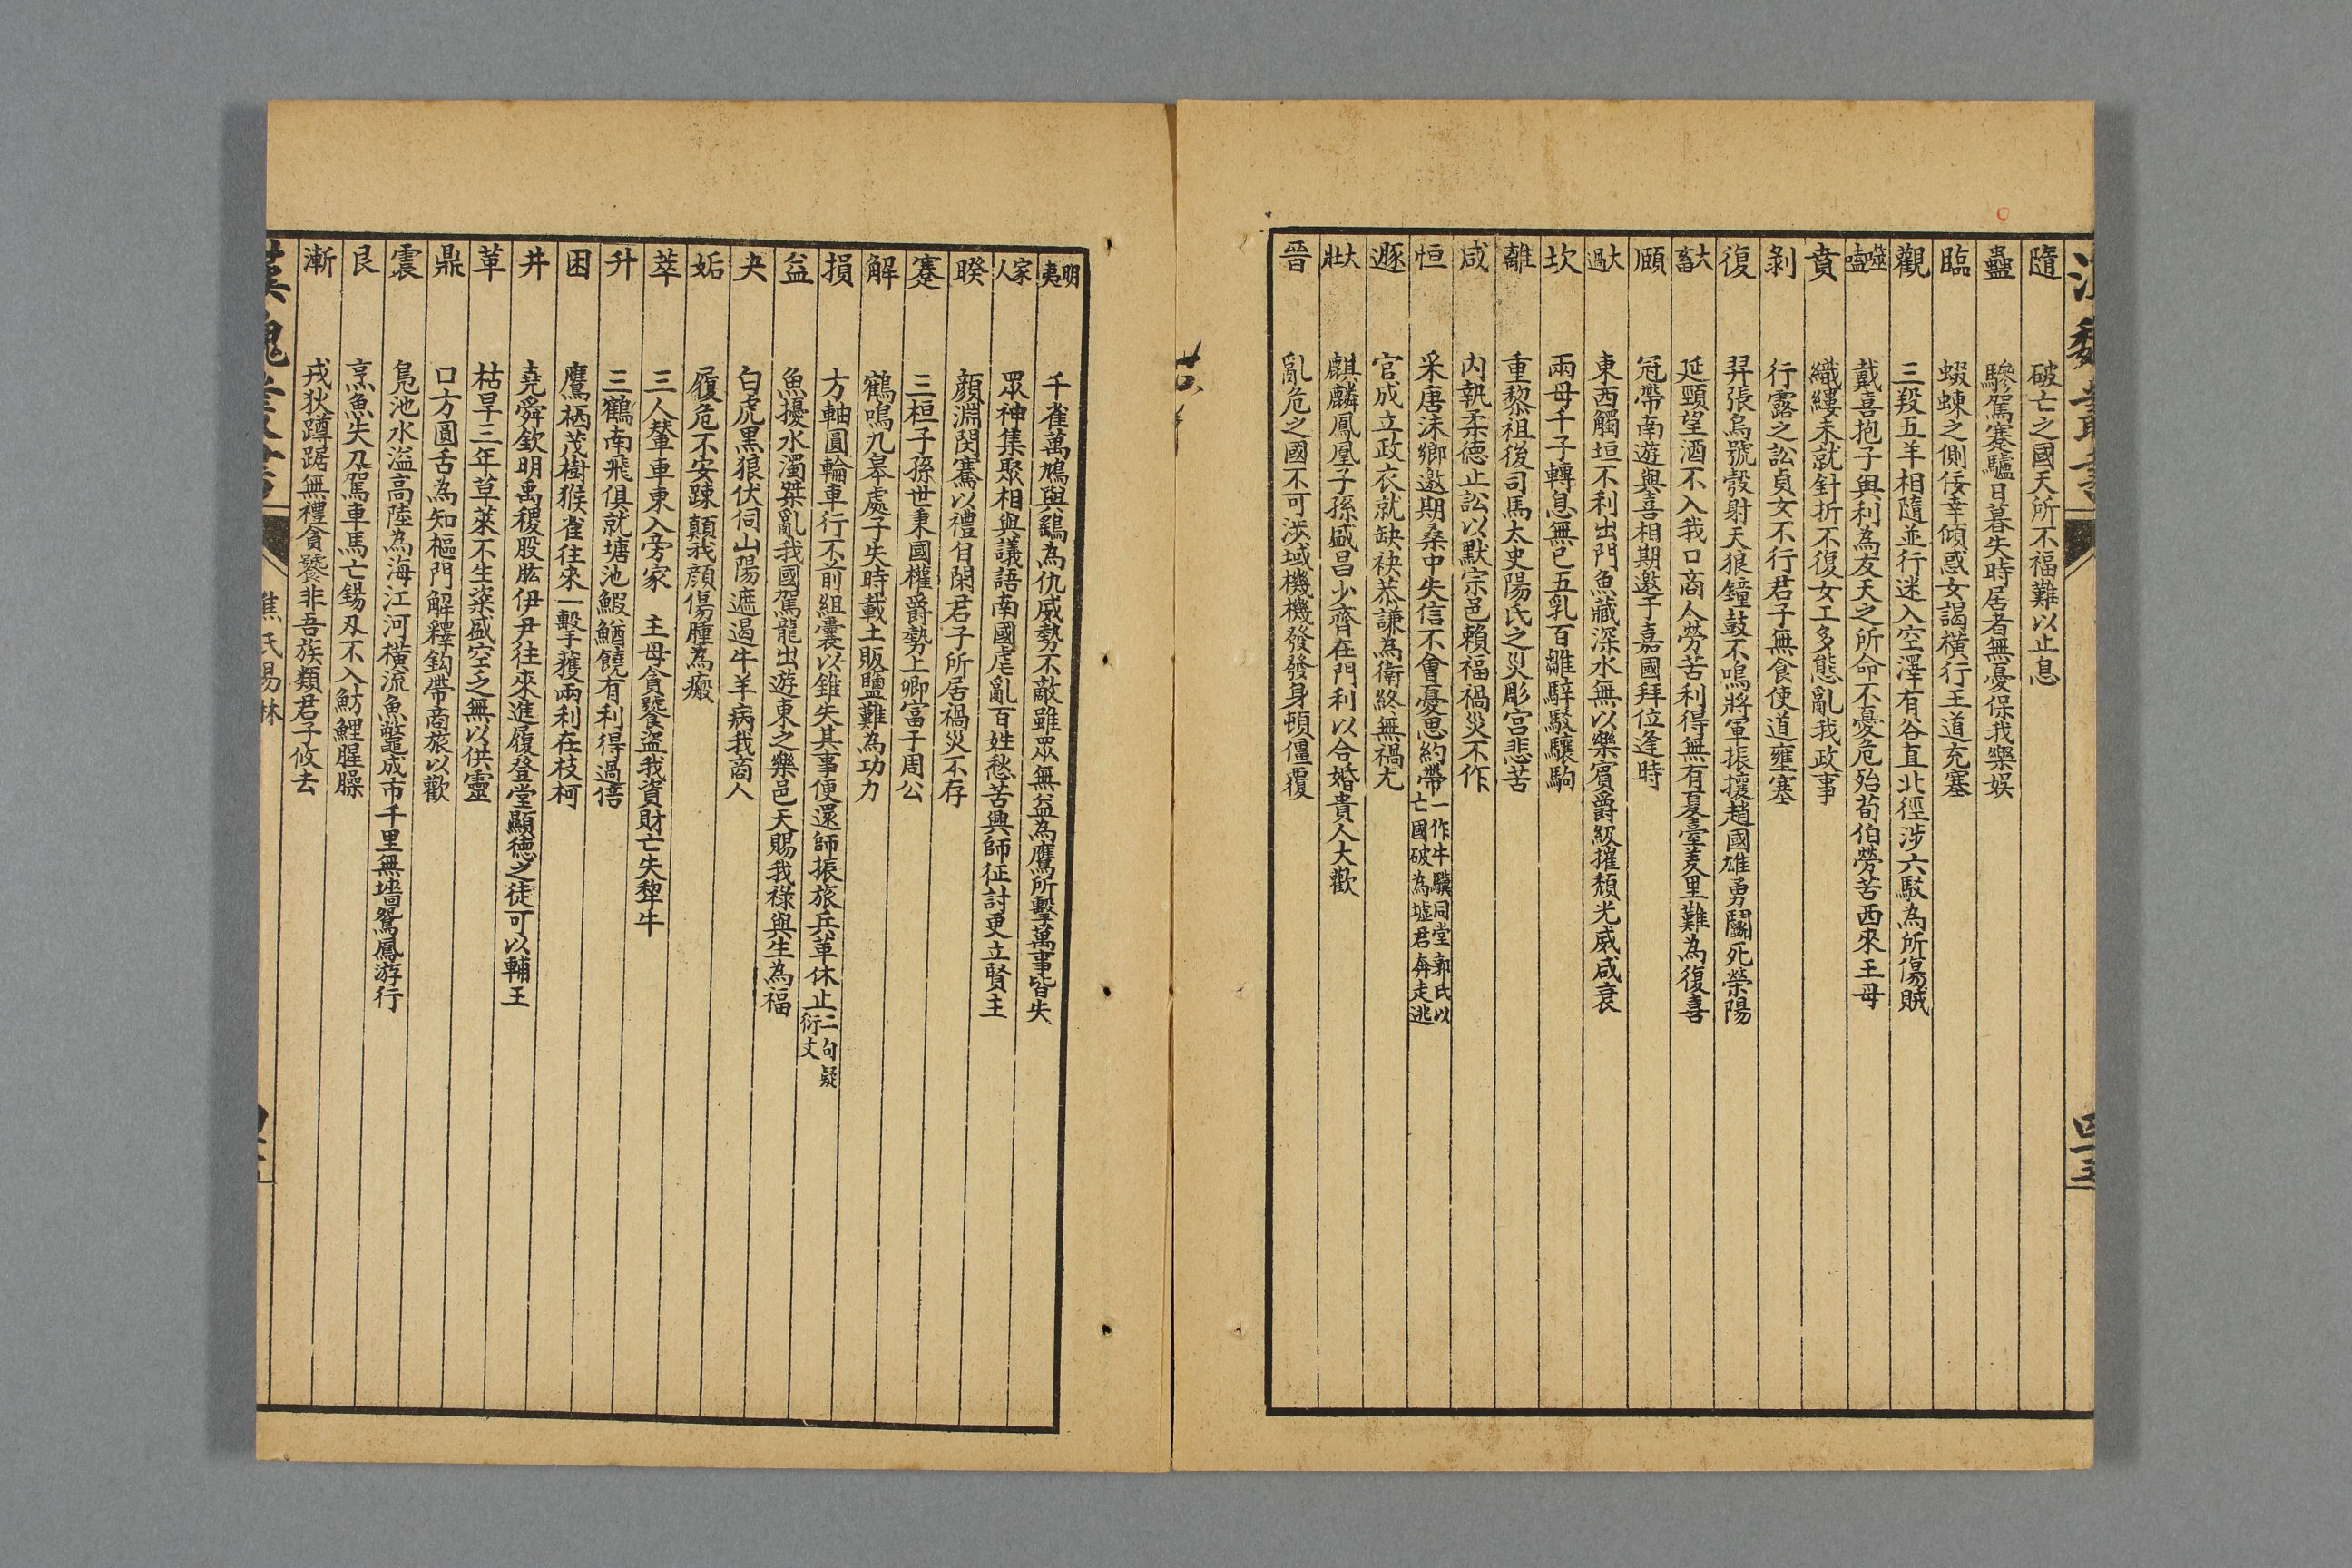 隨 破亡之國天所不福難以止息
蠱 驂駕蹇驢日暮失時居者無憂保我樂娛
臨 蝃蝀之側佞幸傾惑女謁橫行王道充塞
觀 三羖五羊相隨並行迷入空澤有谷直北徑涉六駁為所傷賊
噬嗑 戴喜抱子與利為友天之所命不憂危殆荀伯勞苦西來王母
賁 織縷未就針折不復女工多態亂我政事
剝 行露之訟貞女不行君子無食使道壅塞
復 羿張烏號彀射天狼鐘鼓不鳴將軍振攘趙國雄勇鬬死滎陽
大畜 延頸望酒不入我口商人勞苦利得無有夏臺羑里難為復喜
頤 冠帶南遊與喜相期邀于嘉國拜位逢時
大過 東西觸垣不利出門魚藏深水無以樂賓爵級摧頹光威咸衰
坎 兩母千子轉息無已五乳百雛騂駁驪駒
離 重黎祖後司馬太史陽氏之災彫宮悲苦
咸 內執柔德止訟以默宗邑賴福禍災不作
恒 采唐沬鄉邀期桑中失信不會憂思約帶一作牛驥同堂郭氏以亡國破為墟君奔走逃
遯 官成立政衣就缺袂恭謙為衛終無禍尤
大壯 麒麟鳳凰子孫盛昌少齊在門利以合婚貴人大歡
晉 亂危之國不可涉域機機發發身頓僵覆
明夷 千雀萬鳩與鷂為仇威勢不敵雖眾無益為鷹所擊萬事皆失
家人 眾神集聚相與議語南國虐亂百姓愁苦興師征討更立賢主
睽 顏淵閔騫以禮自閑君子所居禍災不存
蹇 三桓子孫世秉國權爵勢上卿富于周公
解 鶴鳴九皋處子失時載土販鹽難為功力
損 方軸圓輪車行不前組囊以錐失其事便還師振旅兵革休止二句疑衍文
益 魚擾水濁桀亂我國駕龍出遊東之樂邑天賜我祿與生為福
夬 白虎黑狼伏伺山陽遮遏牛羊病我商人
姤 履危不安踈顛我顏傷腫為瘢
萃 三人輦車東入旁家 主母貪饕盜我資財亡失犂牛
升 三鶴南飛俱就塘池鰕鰌饒有利得過倍
困 鷹栖茂樹猴雀往來一擊獲兩利在枝柯
井 堯舜欽明禹稷股肱伊尹往來進履登堂顯德之徒可以輔王
革 枯旱三年草萊不生粢盛空乏無以供靈
鼎 口方圓舌為知樞門解釋鉤帶商旅以歡
震 鳧池水溢高陸為海江河橫流魚鼈成市千里無墻鴛鳳游行
艮 烹魚失刀駕車馬亡錫刄不入魴鯉腥臊
漸 戎狄蹲踞無禮貪饕非吾族類君子攸去
焦氏易林